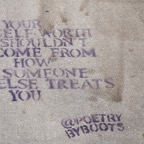 YOUR
SELF WORTH
SHOULDN'T
COME FROM
HOW
SOMEONE
ELSE TREATS
YOU
@POETRY
BYBOOTS